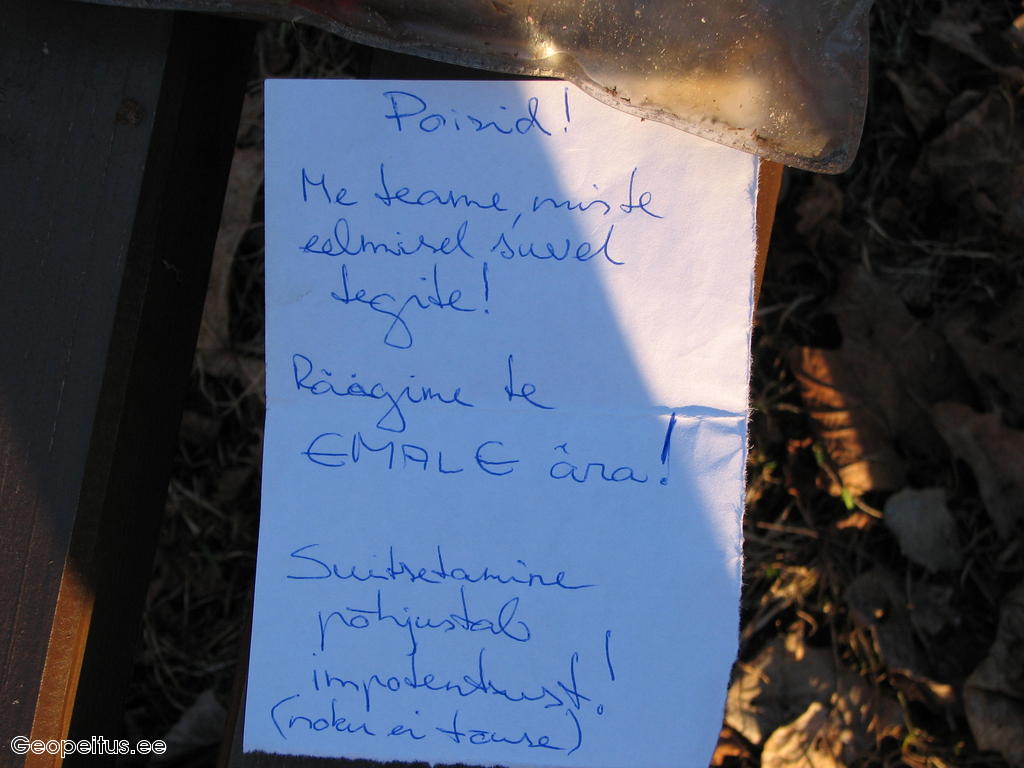 Poisid!
Me teame, mis te
eelmisel suvel
tegite!
Räägime te
EMALE ära!
Suitsetamine
põhjustab
impotentsust!
(noku ei tõuse)
Geopeitus.ee